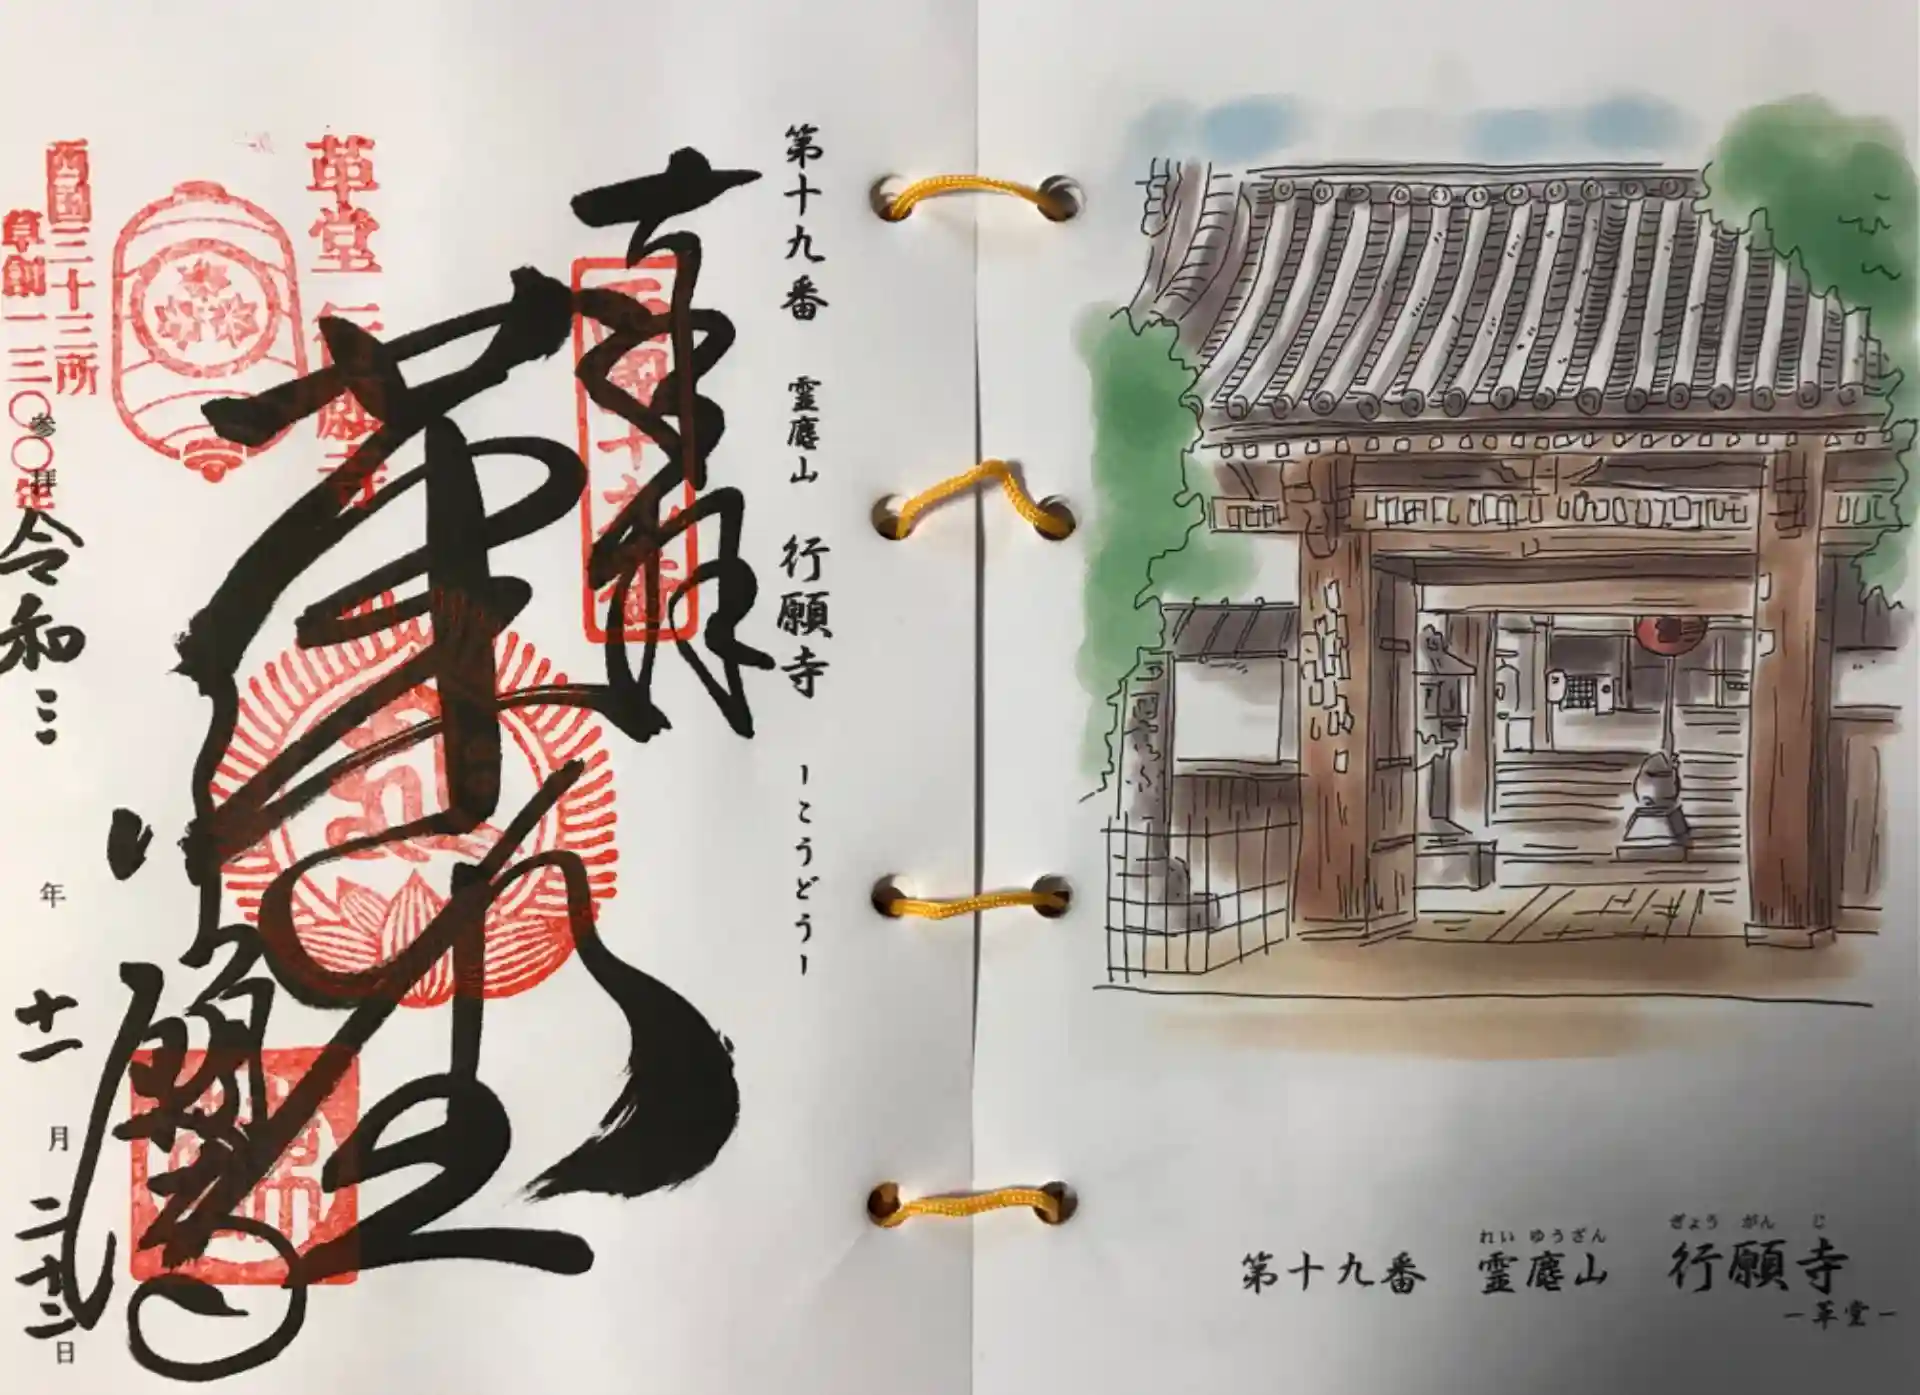 第十九番 霊麀山 行願寺 ーこうどうー
奉拝
西国十九番
革堂
革堂行願寺
行願寺
西国三十三所
草創一三〇〇年
参拝 令和三年十一月二十二日
れいゆうざん ぎょうがんじ
第十九番 霊麀山 行願寺
ー革堂ー